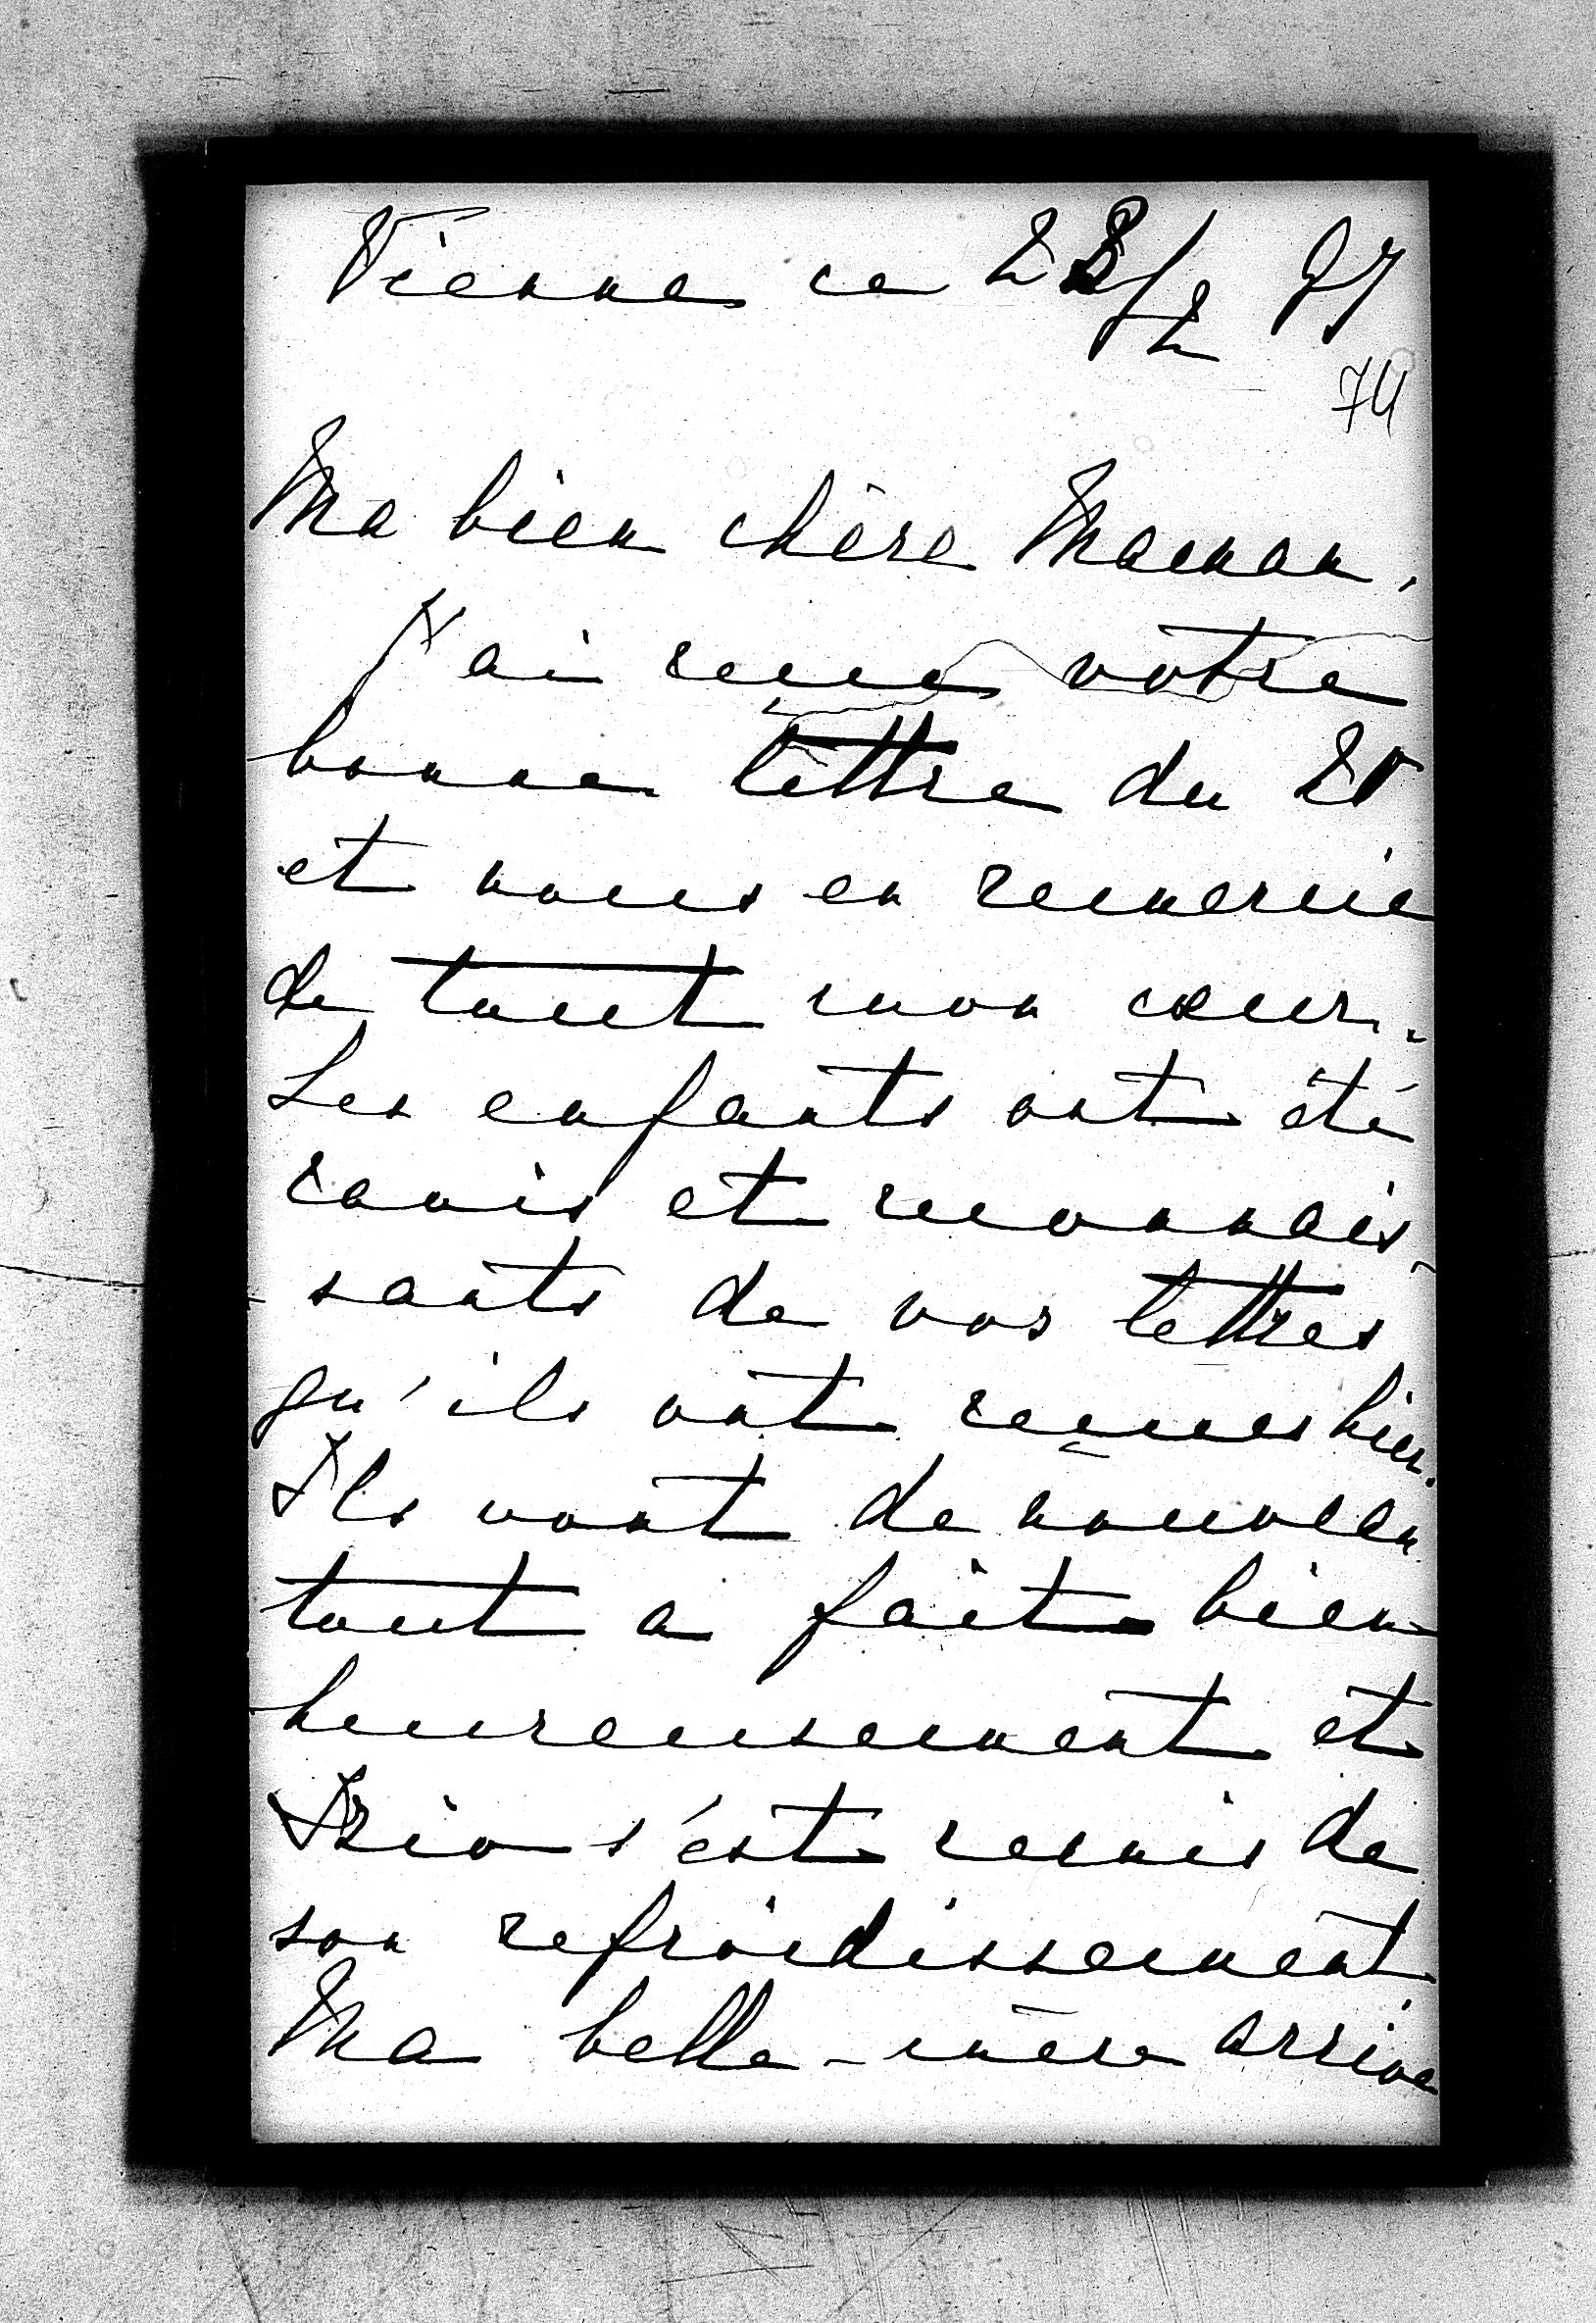 Vienne ce 28/2 97
74
Ma bien chère Maman,
J'ai reçue votre
bonne lettre du 25
et vous en remercie
de tout mon cœur.
Les enfants ont été
ravis et reconnais-
sants de vos lettres
qu'ils ont reçues hier.
Ils vont de nouveau
tout a fait bien
heureusement et
s'est remis de
son refroidissement.
Ma belle-mère arrive